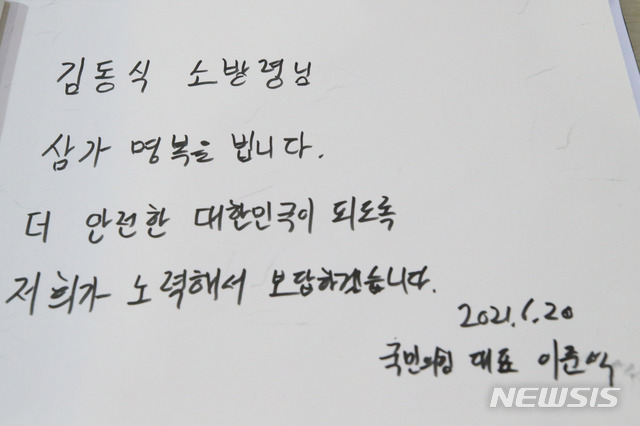 김동식 소방령님
삼가 명복을 빕니다.
더 안전한 대한민국이 되도록
저희가 노력해서 보답하겠습니다.
2021.6.20
국민의힘 대표 이준석
NEWSIS